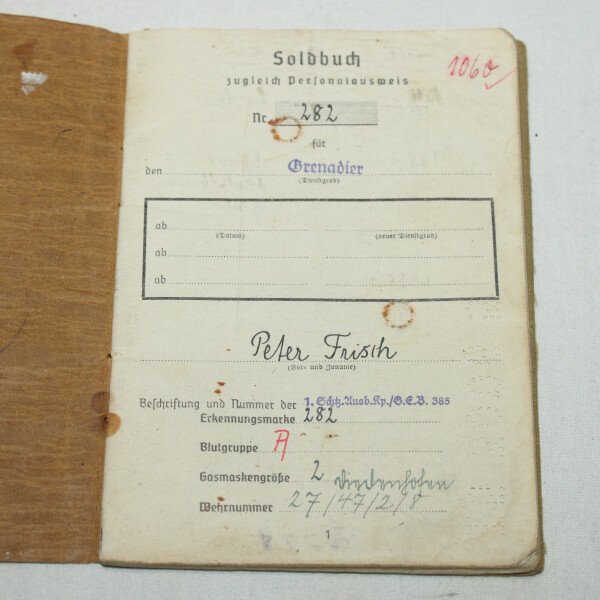 Soldbuch
zugleich Personalausweis
1060
Nr. 282
für
den Grenadier
(Dienstgrad)
ab
(Datum) (neuer Dienstgrad)
ab
ab
Peter Frisch
(Vor- und Zuname)
Beschriftung und Nummer der 1. Schtz.Ausb.Kp./G.E.B. 385
Erkennungsmarke 282
Blutgruppe A
Gasmaskengröße 2 Diedenhofen
Wehrnummer 27/47/2/8
1